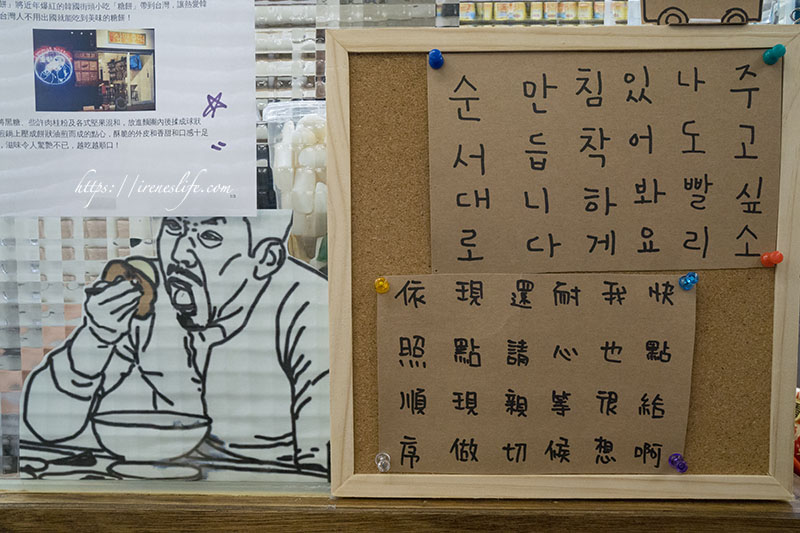 餅」將近年爆紅的韓國街頭小吃「糖餅」帶到台灣，讓熱愛韓
台灣人不用出國就能吃到美味的糖餅！
將黑糖、些許肉桂粉及各式堅果混和，放進麵團內後揉成球狀
煎鍋上壓成餅狀油煎而成的點心，酥脆的外皮和香甜和口感十足
，滋味令人驚艷不已，越吃越順口！
https://ireneslife.com
주고싶소
나도빨리
있어봐요
침착하게
만듭니다
순서대로
快點給啊
我也很想
耐心等候
還請親切
現點現做
依照順序